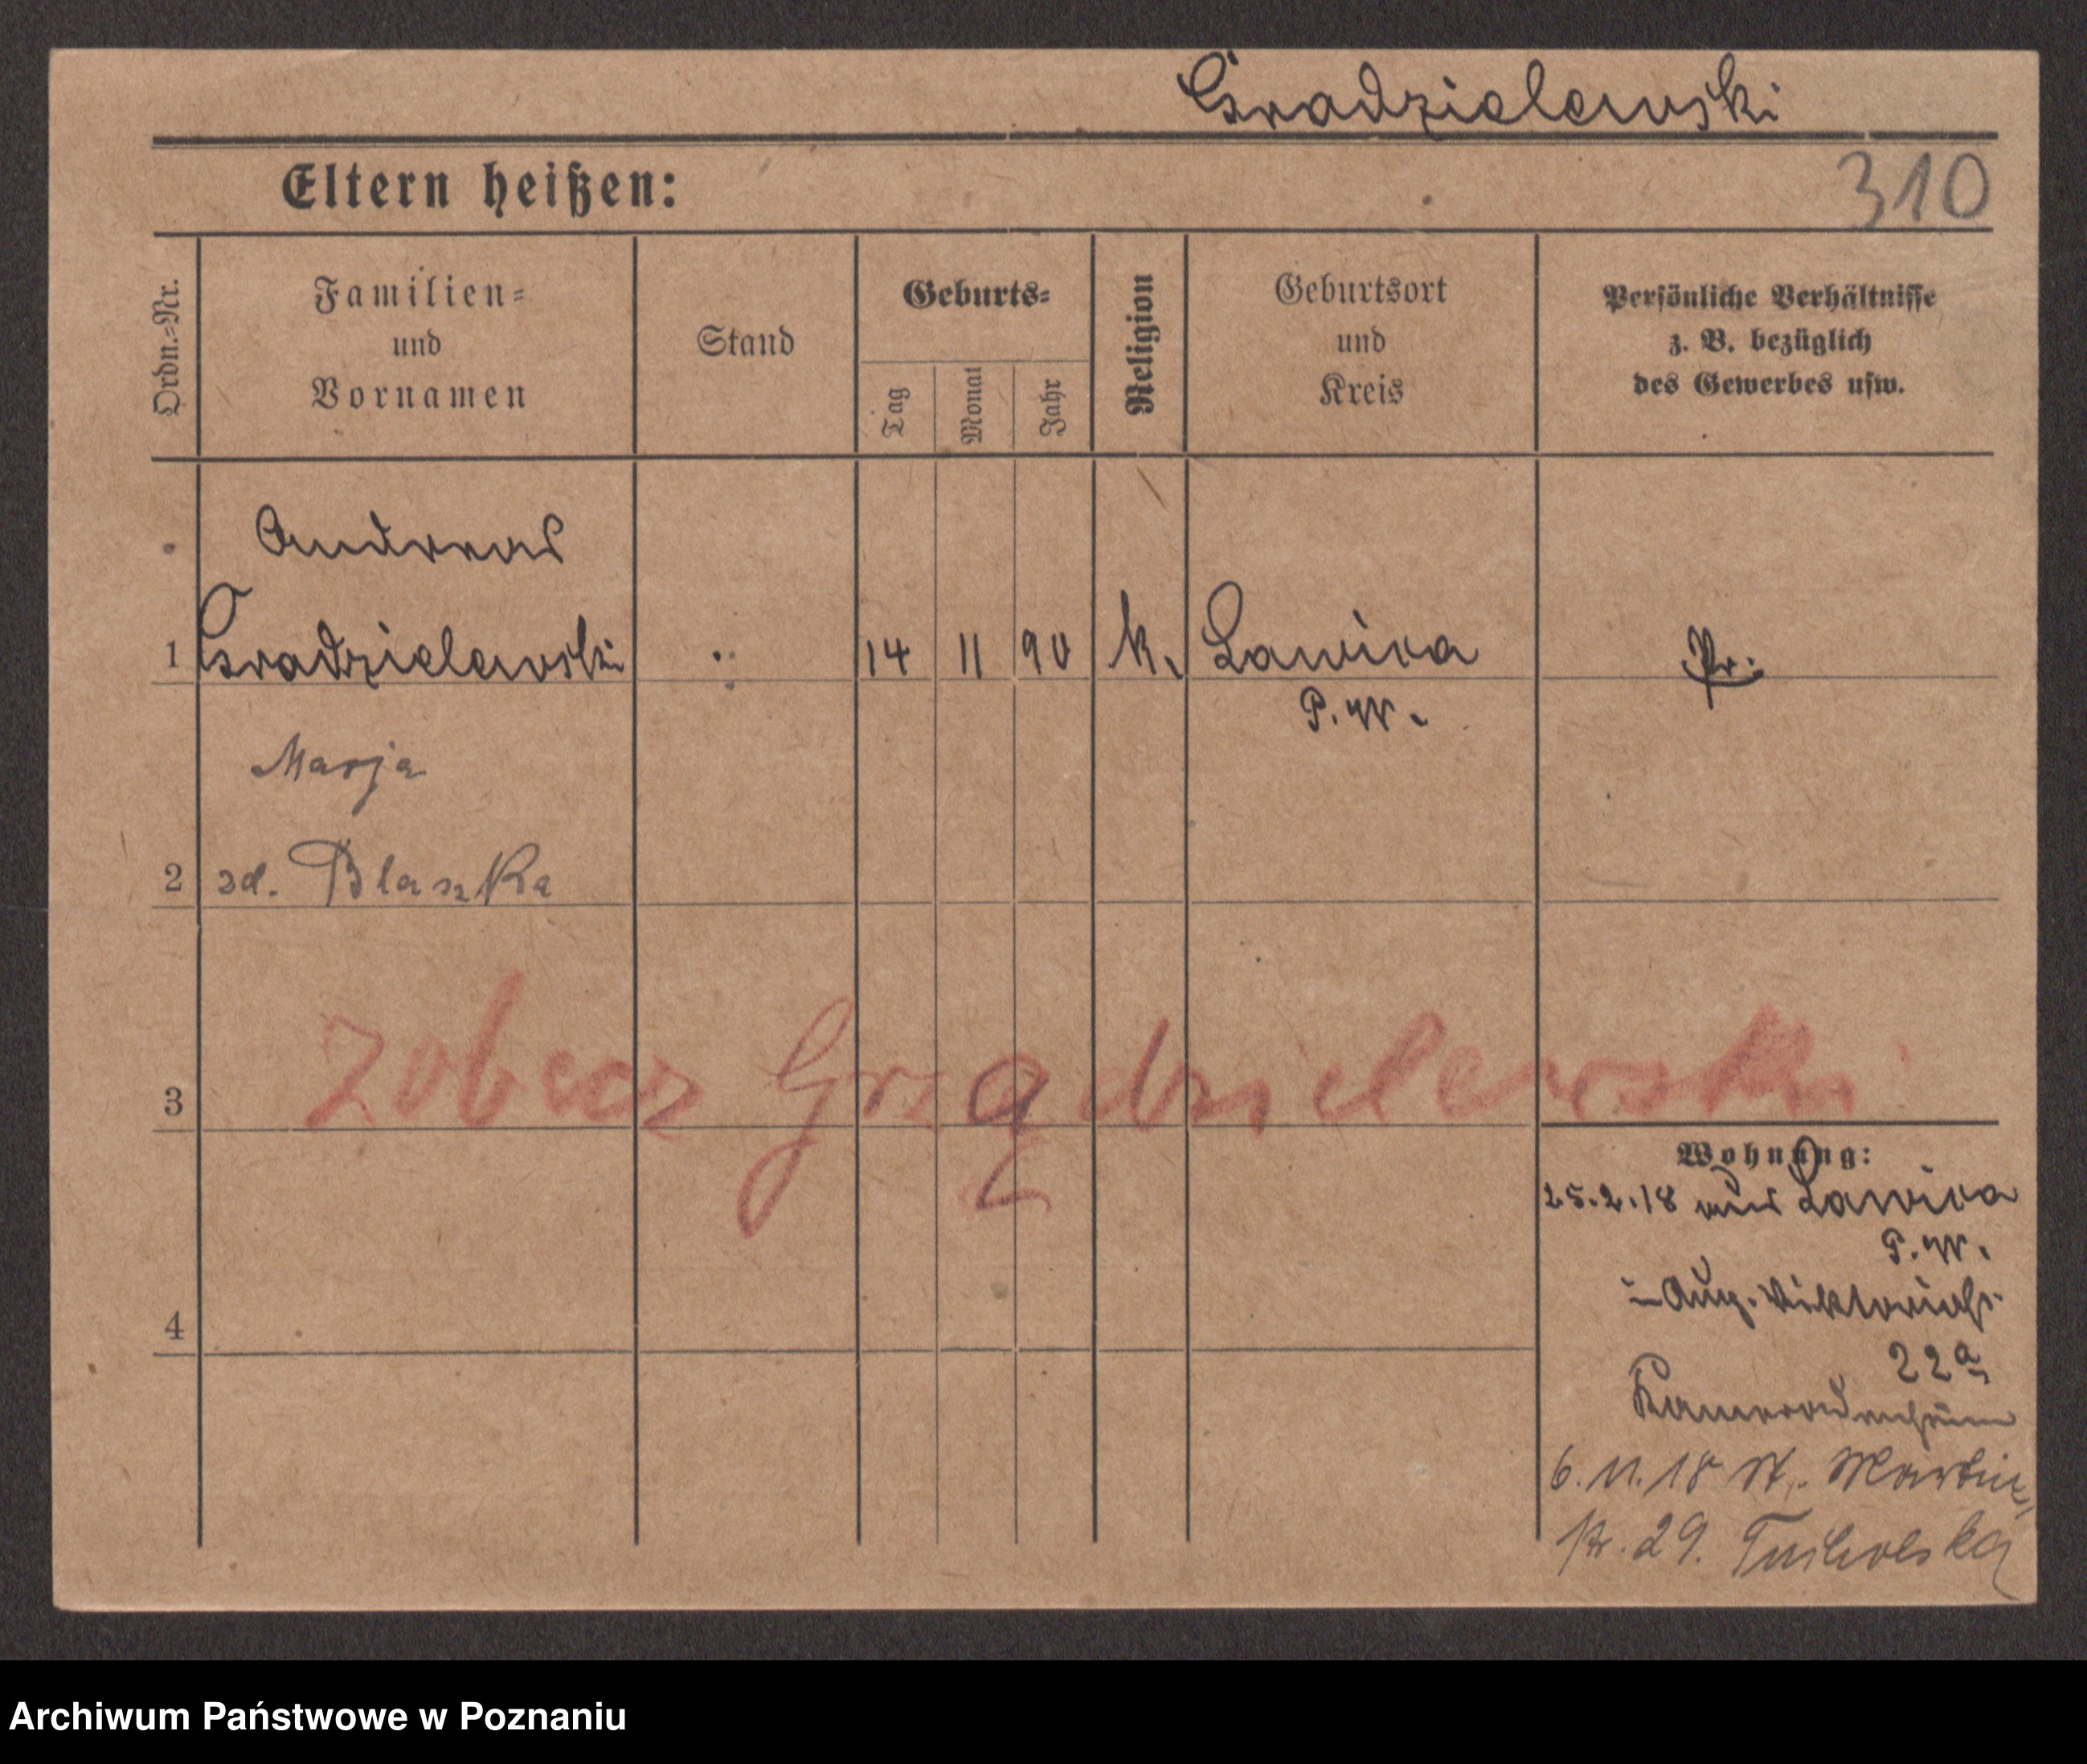 Gradzielewski
Eltern heißen:
310
Ordn.=Nr.
Familien=
und
Vornamen
Stand
Geburts=
Tag
Monat
Jahr
Religion
Geburtsort
und
Kreis
Persönliche Verhältnisse
z. B. bezüglich
des Gewerbes usw.
Andreas
1 Gradzielewski 14 11 90 k. Lawica Pr.
P. W.
Marja
2 zd. Blaszka
3 Zobacz Grądzielewski
4
Wohnung:
25.2.18 aus Lawica
P. W.
Aug. Viktoriastr.
22a
6.11.18 St. Martin
str. 29.
Archiwum Państwowe w Poznaniu